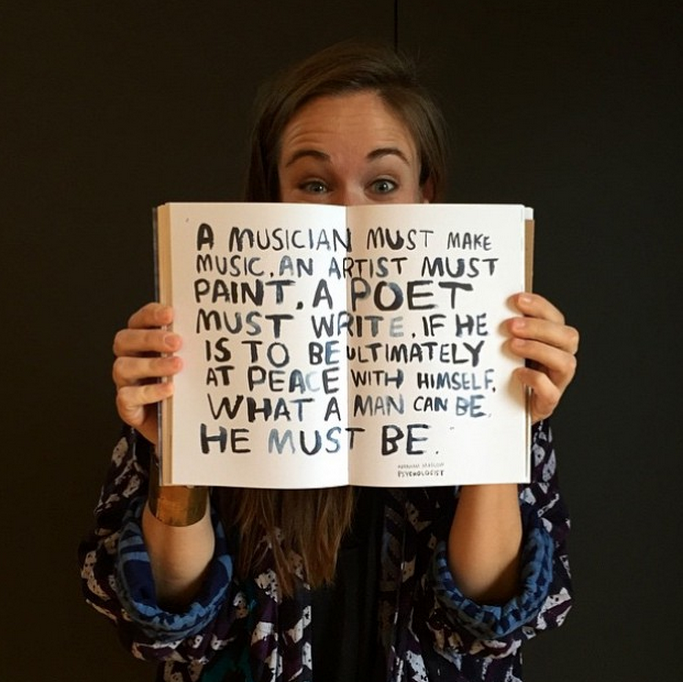 A MUSICIAN MUST MAKE
MUSIC, AN ARTIST MUST
PAINT, A POET
MUST WRITE, IF HE
IS TO BE ULTIMATELY
AT PEACE WITH HIMSELF.
WHAT A MAN CAN BE,
HE MUST BE.
ABRAHAM MASLOW
PSYCHOLOGIST